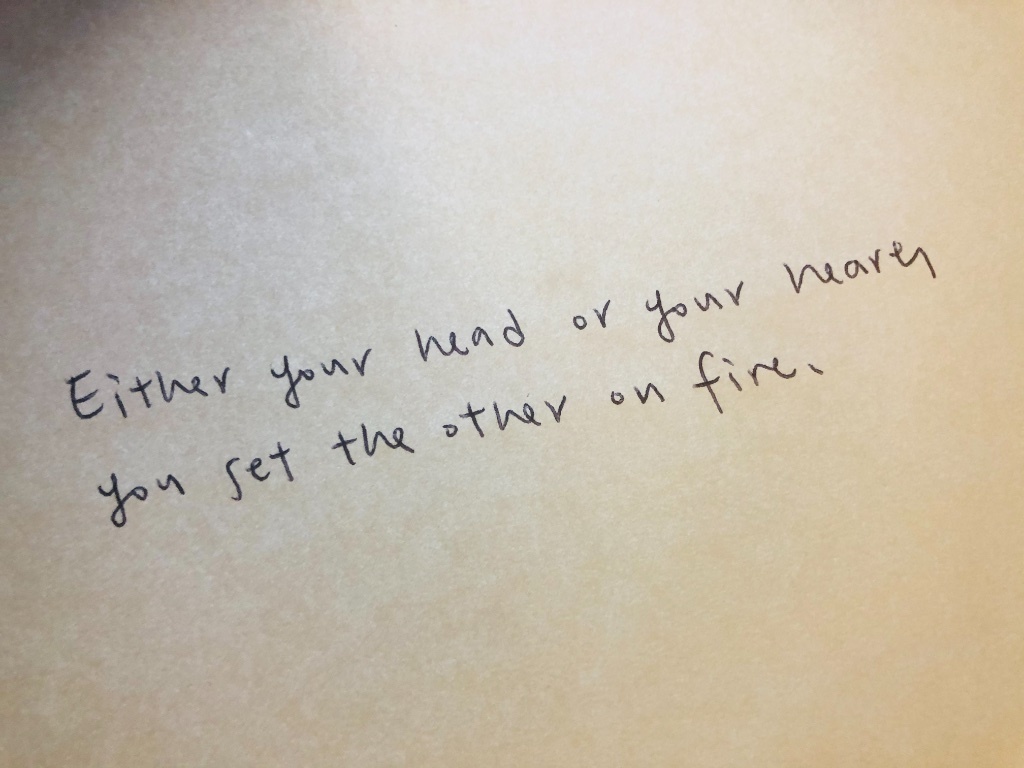 Either your head or your heart,
you set the other on fire.